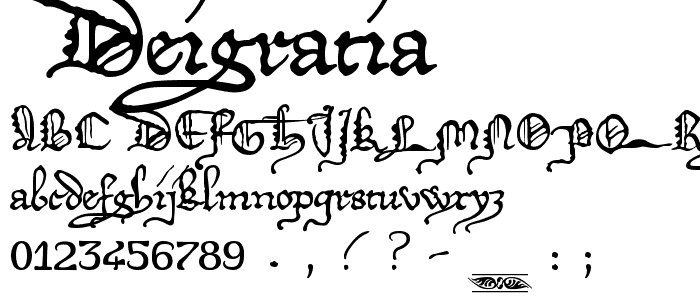 Deigratia
ABC DEFGHIJKLMNOPQR
abcdefghijklmnopqrstuvwxyz
0123456789 . , ! ? - _ : ;